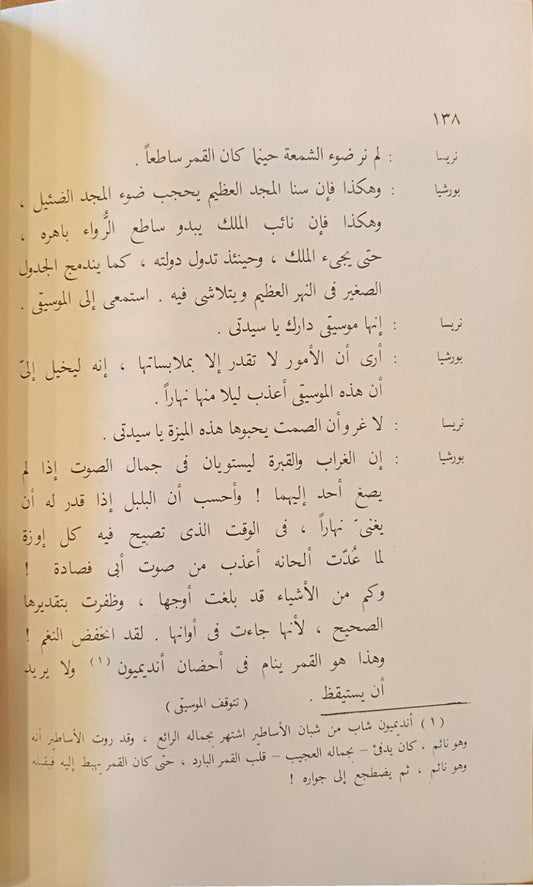 ١٣٨
نريسا : لم نر ضوء الشمعة حينما كان القمر ساطعاً .
بورشيا : وهكذا فإن سنا المجد العظيم يحجب ضوء المجد الضئيل ،
وهكذا فإن نائب الملك يبدو ساطع الرُّواء باهره ،
حتى يجىء الملك ، وحينئذ تدول دولته ، كما يندمج الجدول
الصغير فى النهر العظيم ويتلاشى فيه . استمعى إلى الموسيقى .
نريسا : إنها موسيقى دارك يا سيدتى .
بورشيا : أرى أن الأمور لا تقدر إلا بملابساتها ، إنه ليخيل إلىّ
أن هذه الموسيقى أعذب ليلا منها نهاراً .
نريسا : لا غرو أن الصمت يحبوها هذه الميزة يا سيدتى .
بورشيا : إن الغراب والقبرة ليستويان فى جمال الصوت إذا لم
يصغ أحد إليهما ! وأحسب أن البلبل إذا قدر له أن
يغنىّ نهاراً ، فى الوقت الذى تصيح فيه كل إوزة
لما عُدّت ألحانه أعذب من صوت أبى فصادة !
وكم من الأشياء قد بلغت أوجها ، وظفرت بتقديرها
الصحيح ، لأنها جاءت فى أوانها . لقد انخفض النغم !
وهذا هو القمر ينام فى أحضان أنديميون (١) ولا يريد
أن يستيقظ . ( تتوقف الموسيقى )
(١) أنديميون شاب من شبان الأساطير اشتهر بجماله الرائع ، وقد روت الأساطير أنه
وهو نائم ، كان يدفئ – بجماله العجيب – قلب القمر البارد ، حتى كان القمر يهبط إليه فيقبله
وهو نائم ، ثم يضطجع إلى جواره !